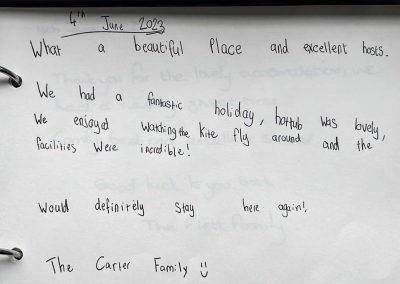 4th June 2023
What a beautiful Place and excellent hosts.
We had a fantastic holiday, hottub was lovely,
We enjoyed watching the kite fly around and the
facilities were incredible!
Would definitely stay here again!
The Carter Family ü